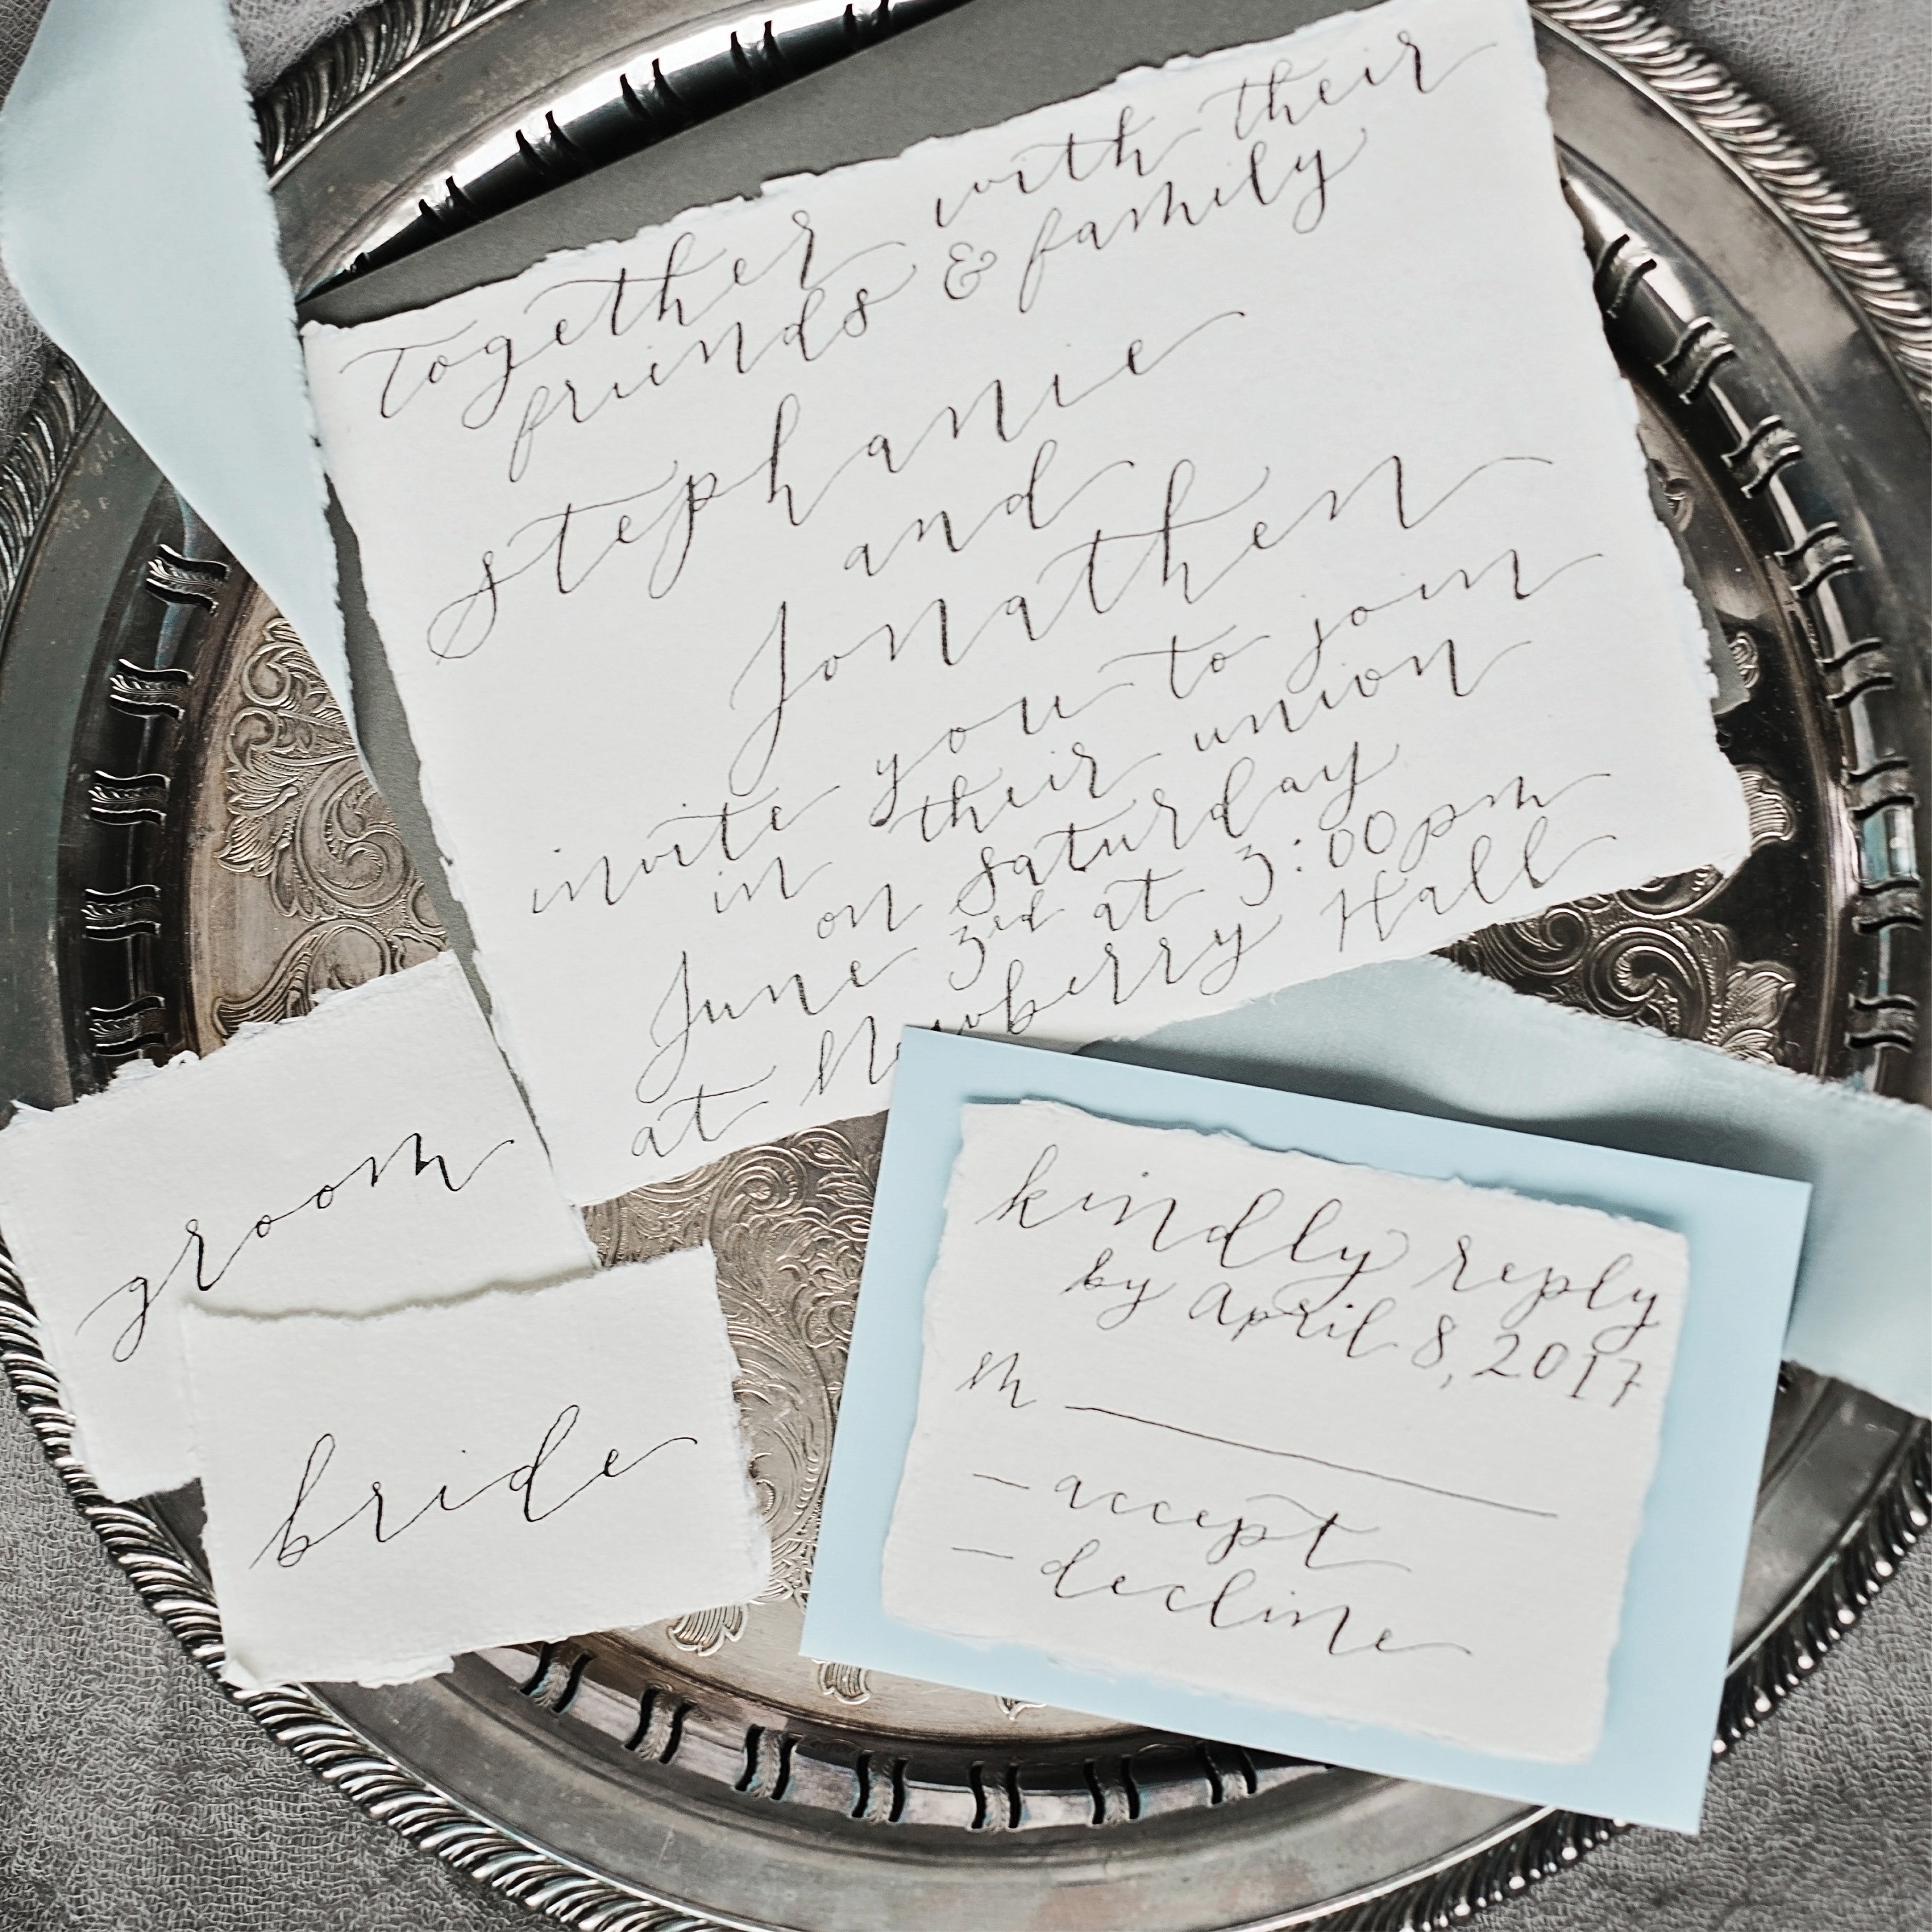 Together with their
friends & family
Stephanie
and
Jonathen
invite you to join
in their union
on Saturday
June 3rd at 3:00pm
at Newberry Hall
groom
bride
kindly reply
by April 8, 2017
M
— accept
— decline